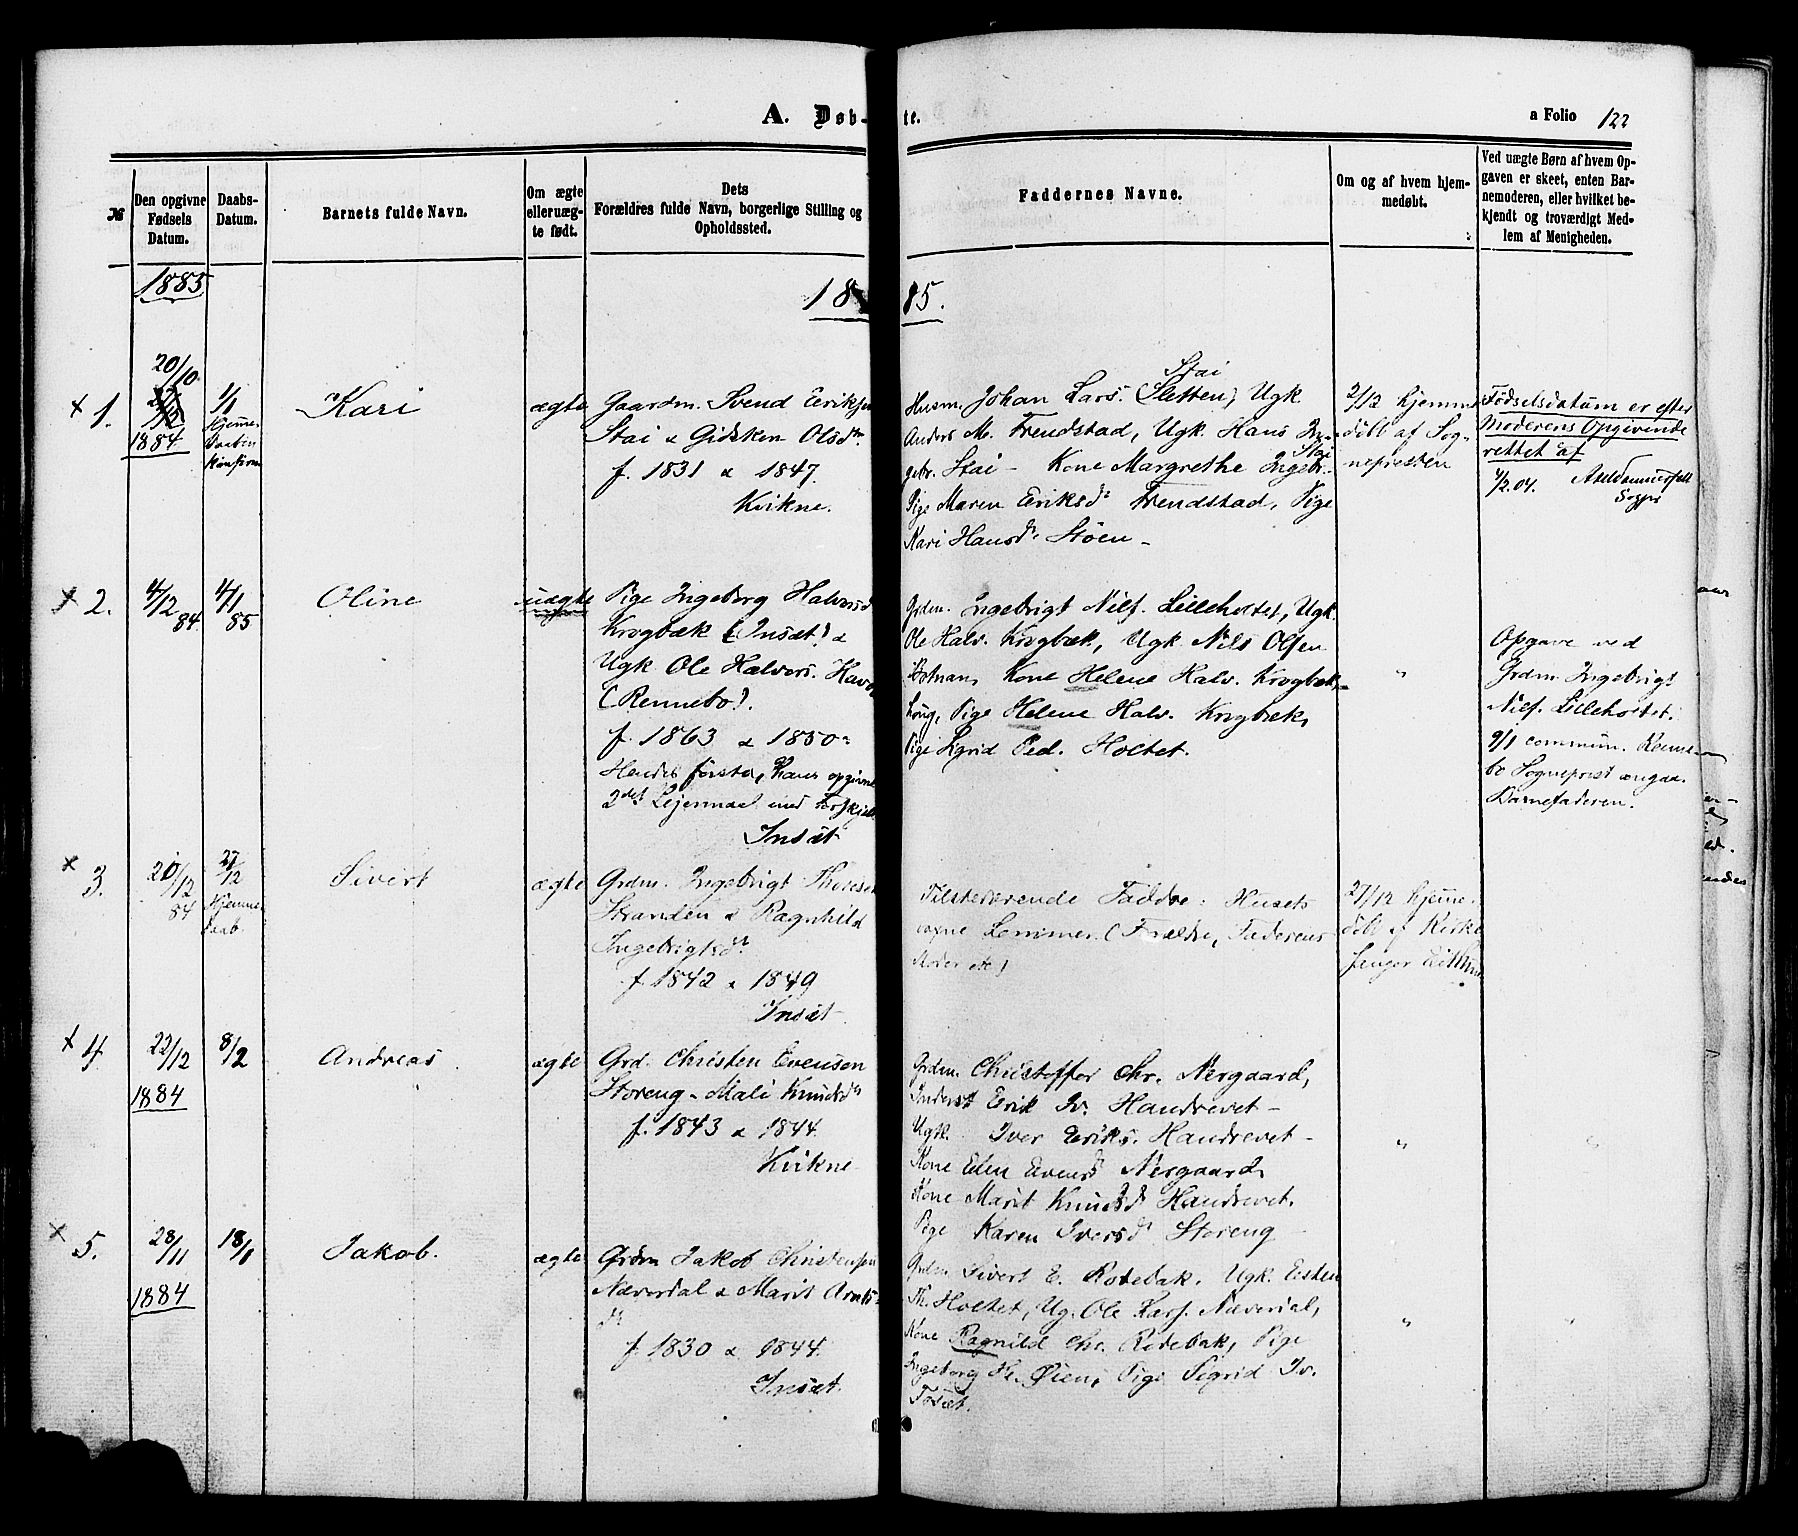 A. Døb-te.
a Folio 122
№
Den opgivne Fødsels Datum.
Daabs-Datum.
Barnets fulde Navn.
Om ægte eller uægte født.
Dets Forældres fulde Navn, borgerlige Stilling og Opholdssted.
Faddernes Navne.
Om og af hvem hjemmedøbt.
Ved uægte Børn af hvem Opgaven er skeet, enten Barnemoderen, eller hvilket bekjendt og troværdigt Medlem af Menigheden.
1885
1885.
+ 1.
20/10
1884
1/1
Kari
ægte
Gaardm. Svend Eriksen
Stai & Gidsken Olsdtr
f. 1831 & 1847.
Kvikne.
Stai
Husm. Johan Lars. (Sletten) Ugk.
Anders M. Frendstad, Ugk. Hans In-
gebr. Stai - Kone Margrethe Ingebr. Stai
Pige Maren Eriksd. Frendstad, Pige
Kari Hansd. Støen -
2/12 hjemme-
døbt af Sog-
nepresten
Fødselsdatum er efter
Moderens Opgivende
rettet af
4/2.04.
Sogpr
2.
4/12 84.
4/1 85
Oline
uægte
Pige Ingeborg Halvorsd
Krogbæk (Insæt) &
Ugk Ole Halvors. Havd
(Rennebo).
f. 1863 & 1850
Hendes første, Hans opgivne
2det Lejermaal med
Insæt
Grdm. Ingebrigt Nils. Lilleholtet, Ugk.
Ole Halv. Krogbæk, Ugk Nils Olsen
Kone Helene Halv. Krogbæk,
Pige Helene Halv. Krogbæk,
Pige Sigrid Ped. Holtet.
"
Opgave ved
Grdm Ingebrigt
Nils. Lilleholtet.
9/1 commun. Renne-
bo Sogneprest angaa.
Barnefaderen.
x 3.
20/12 84
27/12
Hjemme-
daab.
Sivert
ægte
Grdm. Ingebrigt Thoresen
Stranden & Ragnhild
Ingebrigtsdtr
f. 1842 & 1849
Insæt
Tilstedværende Faddre: Husets
voxne Lemmer (Forældre, Faderens
Moder etc)
27/12 hjemme-
døbt af Kirke
sanger
+ 4.
22/12
1884
8/2
Andreas
ægte
Grd. Christen Evensen
Storeng - Mali Knudsdtr
f. 1843 & 1844.
Kvikne
Grdm. Christoffer Chr. Nergaard,
Inderst Erik Iv. Haudrevet -
Ugk. Iver Eriks. Haudrevet -
Kone Elen Evensd Nergaard,
Kone Marit Knudsd Haudrevet.
Pige Karen Iversd Storeng -
"
"
x 5.
28/11
1884
18/1
Jakob.
ægte
Grdm Jakob Christensen
Næverdal & Marit Arnts-
dtr
f. 1830 & 1844.
Insæt.
Grdm Sivert E. Rodebak. Ugk. Esten
Th. Holtet, Ug. Ole Lars. Næverdal,
Kone Ragnild Chr. Rodebak, Pige
Ingeborg He. Øien, Pige Sigrid Iv.
Tosæt.
"
"